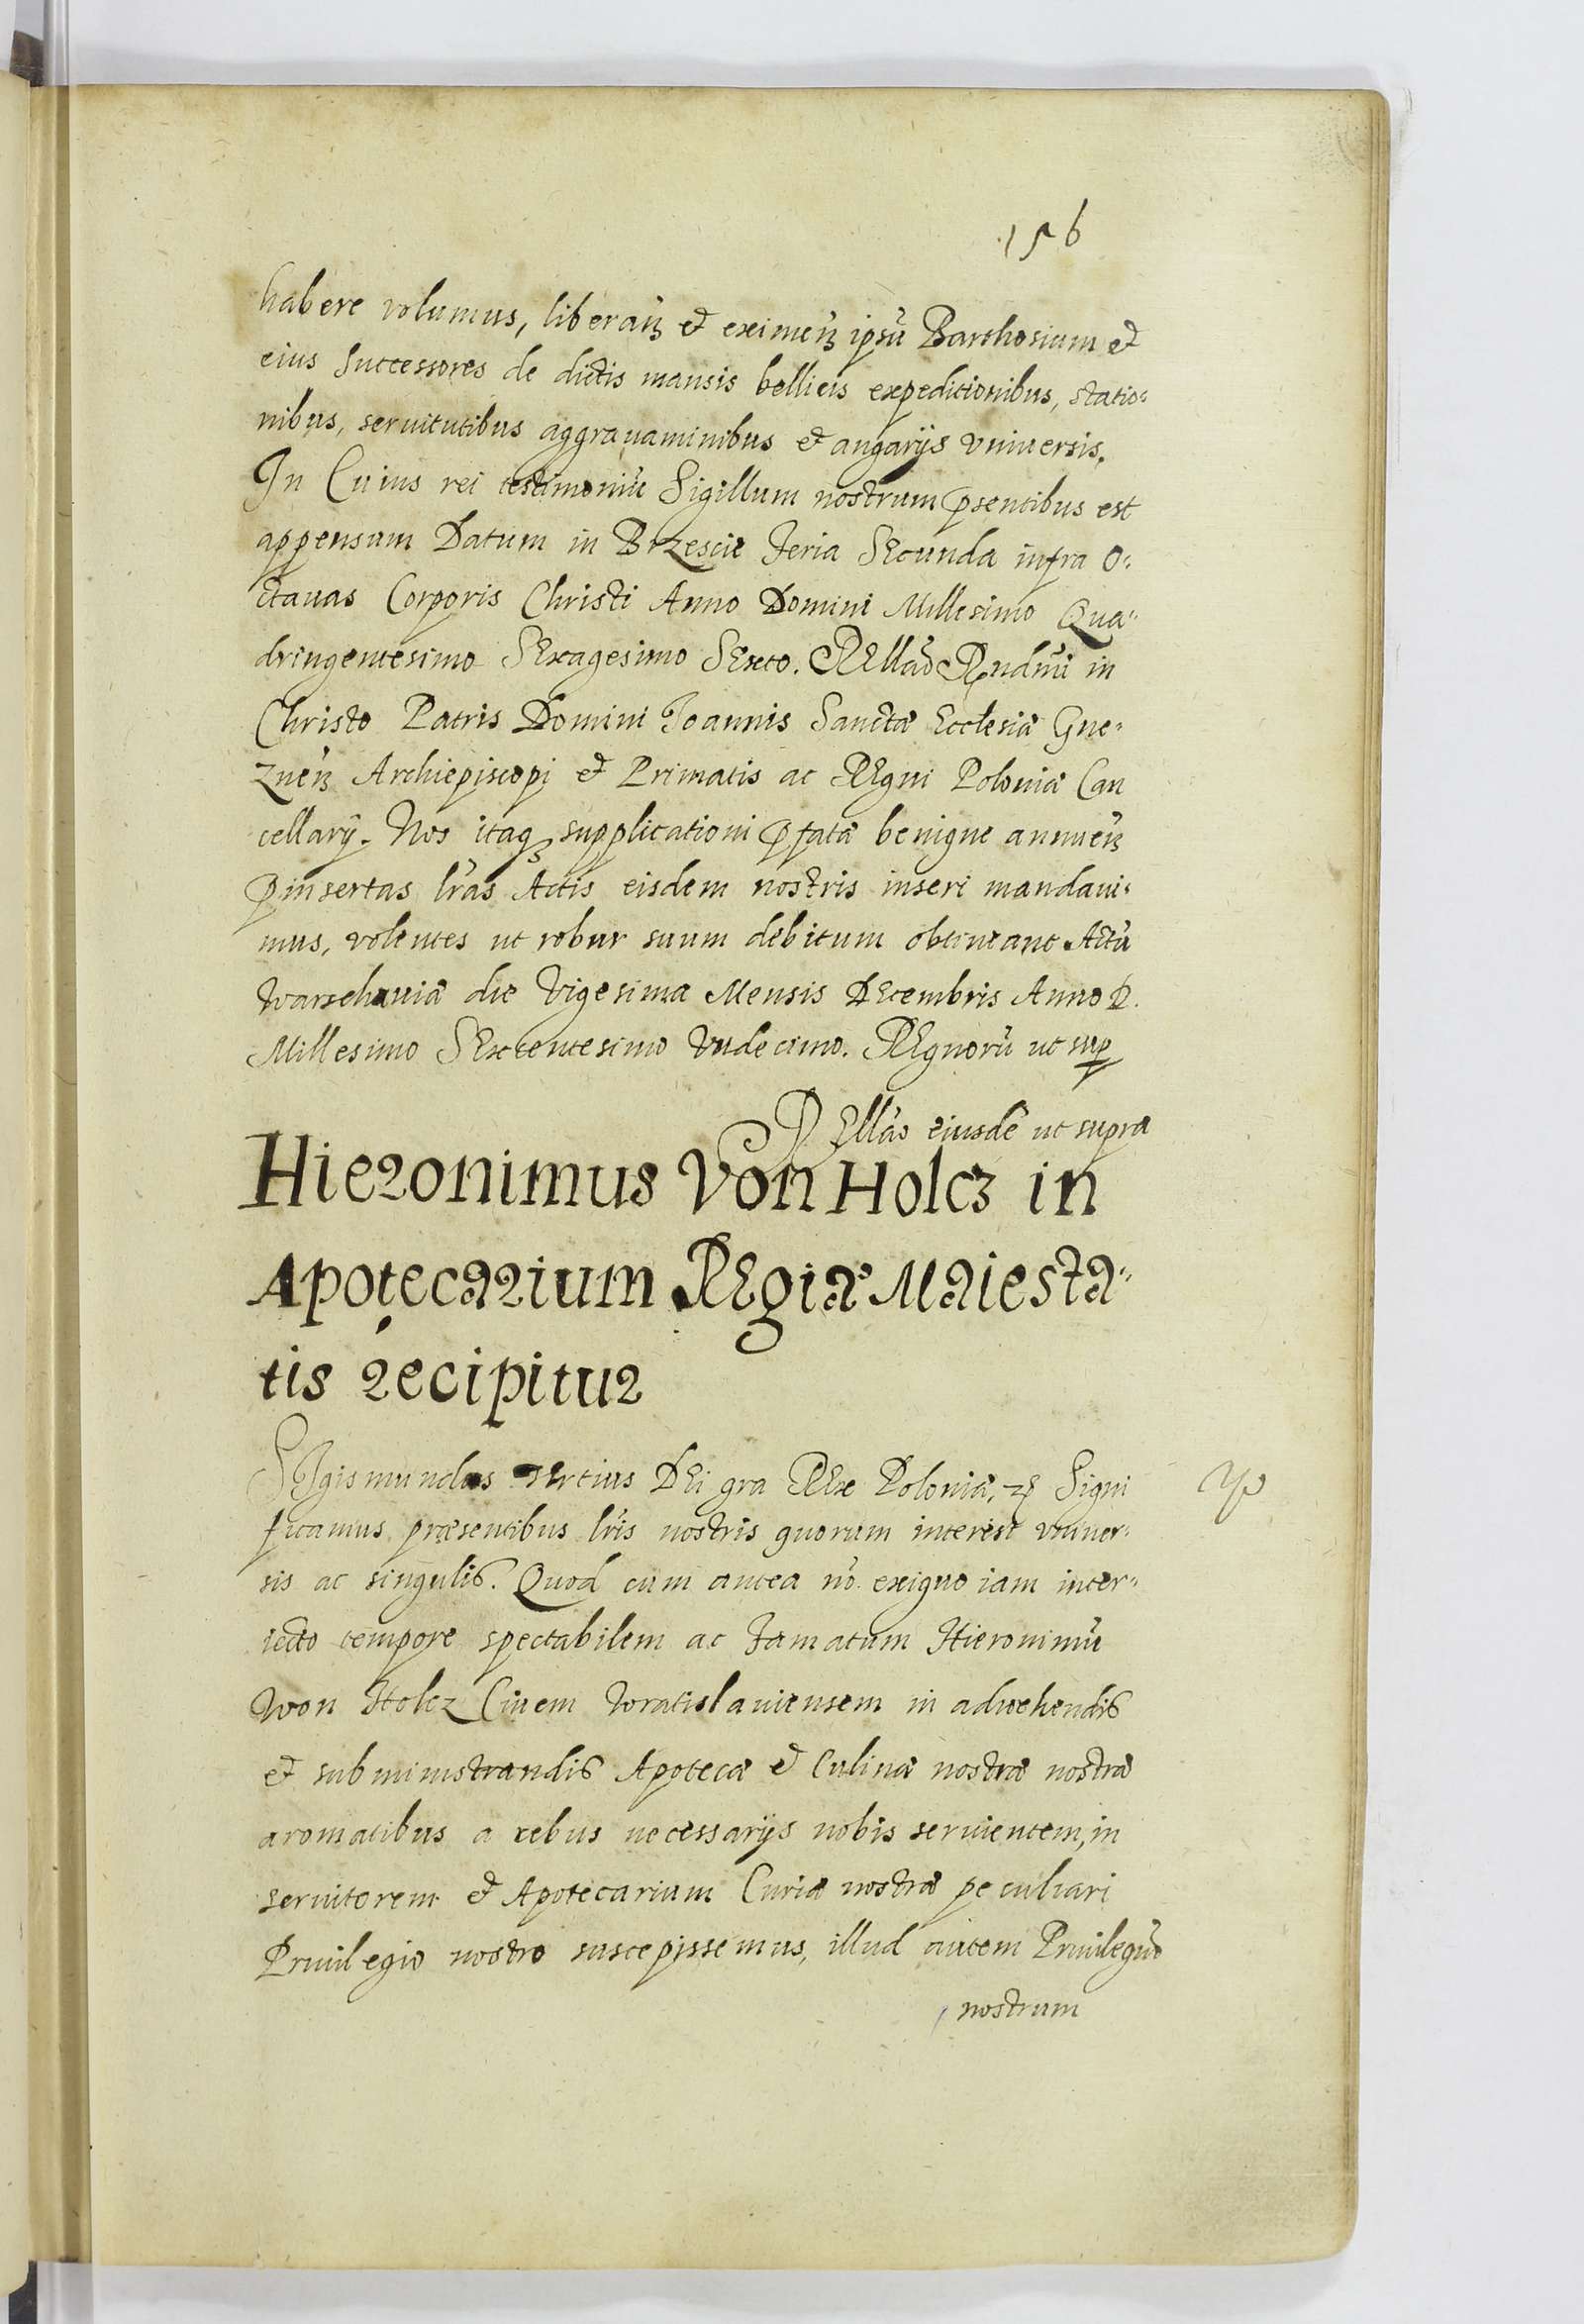 156
habere volumus, liberań et eximeń ipsū Barthosium et
eius Successores de dictis mansis bellicis expeditionibus, statio-
nibus, seruitutibus aggrauaminibus et angarijs vniuersis.
In Cuius rei testimoniū Sigillum nostrum pñsentibus est
appensum Datum in Brzescie Feria Secunda infra O-
ctauas Corporis Christi Anno Domini Millesimo Qua-
dringentesimo Sexagesimo Sexto. Rellāo Rndmi in
Christo Patris Domini Joannis Sanctæ Ecclesiæ Gne-
zneń Archiepiscopi et Primatis ac Regni Poloniæ Can
cellarij. Nos itaq₃ supplicationi pfatæ benigne annueń
pinsertas lras Actis eisdem nostris inseri mandaui-
mus, volentes ut robur suum debitum obtineant Actū
Warschauiæ die Vigesima Mensis Decembris Anno D.
Millesimo Sexcentesimo Vndecimo. Regnorū ut sup
Rellāo eiusdē ut supra
Hieronimus Von Holcz in
Apotecarium Regiæ Maiesta-
tis recipitur
Sigismundus Tertius Dei gra Rex Poloniæ, etc Signi
ficamus præsentibus lris nostris quorum interest vniuer-
sis ac singulis. Quod cum antea nō exiguo iam inter-
iecto tempore spectabilem ac Famatum Hieronimū
Won Holcz Ciuem Wratislauiensem in aduehendis
et subministrandis Apotecæ et Culinæ nostræ nostræ
aromatibus a rebus necessarijs nobis seruientem, in
seruitorem et Apotecarium Curiæ nostræ peculiari
Priuilegio nostro suscepissemus, illud autem Priuilegiū
nostrum